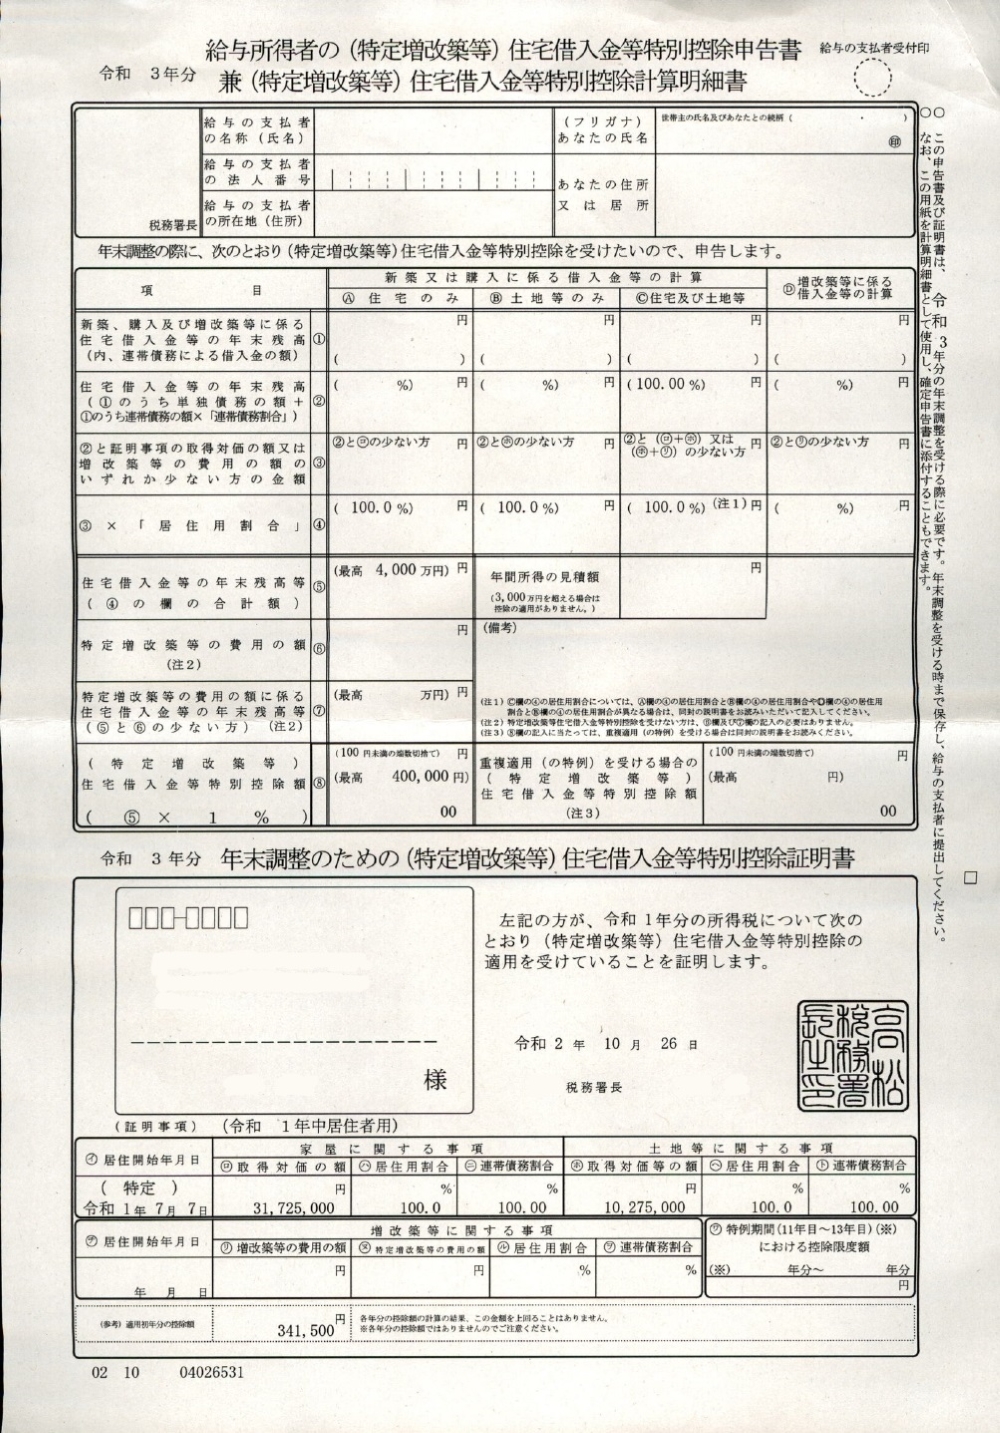 令和 3年分
給与所得者の(特定増改築等)住宅借入金等特別控除申告書
兼(特定増改築等)住宅借入金等特別控除計算明細書
給与の支払者受付印
税務署長
給与の支払者の名称(氏名)
給与の支払者の法人番号
給与の支払者の所在地(住所)
(フリガナ)
あなたの氏名
世帯主の氏名及びあなたとの続柄( ・ )
㊞
あなたの住所
又は居所
年末調整の際に、次のとおり(特定増改築等)住宅借入金等特別控除を受けたいので、申告します。
項 目
新築又は購入に係る借入金等の計算
Ⓐ 住宅のみ
Ⓑ 土地等のみ
Ⓒ住宅及び土地等
Ⓓ増改築等に係る借入金等の計算
新築、購入及び増改築等に係る
住宅借入金等の年末残高
(内、連帯債務による借入金の額)
①
円 円 円 円
( ) ( ) ( ) ( )
住宅借入金等の年末残高
(①のうち単独債務の額+
①のうち連帯債務の額×「連帯債務割合」)
②
( %) 円 ( %) 円 (100.00 %) 円 ( %) 円
②と証明事項の取得対価の額又は
増改築等の費用の額の
いずれか少ない方の金額
③
②と㋺の少ない方 円
②と㋭の少ない方 円
②と(㋺+㋭)又は(㋭+㋷)の少ない方 円
②と㋷の少ない方 円
③ × 「居住用割合」
④
( 100.0 %) 円 ( 100.0 %) 円 ( 100.0 %)(注1)円 ( %) 円
住宅借入金等の年末残高等
(④の欄の合計額)
⑤
(最高 4,000 万円) 円
年間所得の見積額
(3,000万円を超える場合は控除の適用がありません。)
円
特定増改築等の費用の額
(注2)
⑥
円
(備考)
特定増改築等の費用の額に係る
住宅借入金等の年末残高等
(⑤と⑥の少ない方)(注2)
⑦
(最高 万円) 円
(注1)Ⓒ欄の④の居住用割合については、Ⓐ欄の④の居住用割合とⒷ欄の④の居住用割合やⒹ欄の④の居住用
割合とⒷ欄の④の居住用割合が異なる場合は、同封の説明書をお読みいただいて記入してください。
(注2)特定増改築等住宅借入金等特別控除を受けない方は、⑥欄及び⑦欄の記入の必要はありません。
(注3)⑧欄の記入に当たっては、重複適用(の特例)を受ける場合は同封の説明書をお読みください。
(特定増改築等)
住宅借入金等特別控除額
( ⑤ × 1 % )
⑧
(100 円未満の端数切捨て) 円
(最高 400,000 円)
00
重複適用(の特例)を受ける場合の
(特定増改築等)
住宅借入金等特別控除額
(注3)
(100 円未満の端数切捨て) 円
(最高 円)
00
○○ この申告書及び証明書は、令和 3年分の年末調整を受ける際に必要です。年末調整を受ける時まで保存し、給与の支払者に提出してください。
なお、この用紙を計算明細書として使用し、確定申告書に添付することもできます。
令和 3年分 年末調整のための(特定増改築等)住宅借入金等特別控除証明書
様
左記の方が、令和 1年分の所得税について次の
とおり(特定増改築等)住宅借入金等特別控除の
適用を受けていることを証明します。
令和 2 年 10 月 26 日
税務署長
高松税務署長之印
(証明事項) (令和 1年中居住者用)
㋑ 居住開始年月日
家屋に関する事項
土地等に関する事項
㋺取得対価の額
㋩居住用割合
㋥連帯債務割合
㋭取得対価等の額
㋬居住用割合
㋣連帯債務割合
( 特定 )
令和 1年 7月 7日
円 31,725,000
% 100.0
% 100.00
円 10,275,000
% 100.0
% 100.00
㋠ 居住開始年月日
増改築等に関する事項
㋷増改築等の費用の額
㋦特定増改築等の費用の額
㋸居住用割合
㋾連帯債務割合
年 月 日
円 円 % %
㋻ 特例期間(11年目~13年目)(※)
における控除限度額
(※) 年分~ 年分
円
(参考)適用初年分の控除額
円 341,500
各年分の控除額の計算の結果、この金額を上回ることはありません。
※各年分の控除額ではありませんのでご注意ください。
02 10 04026531